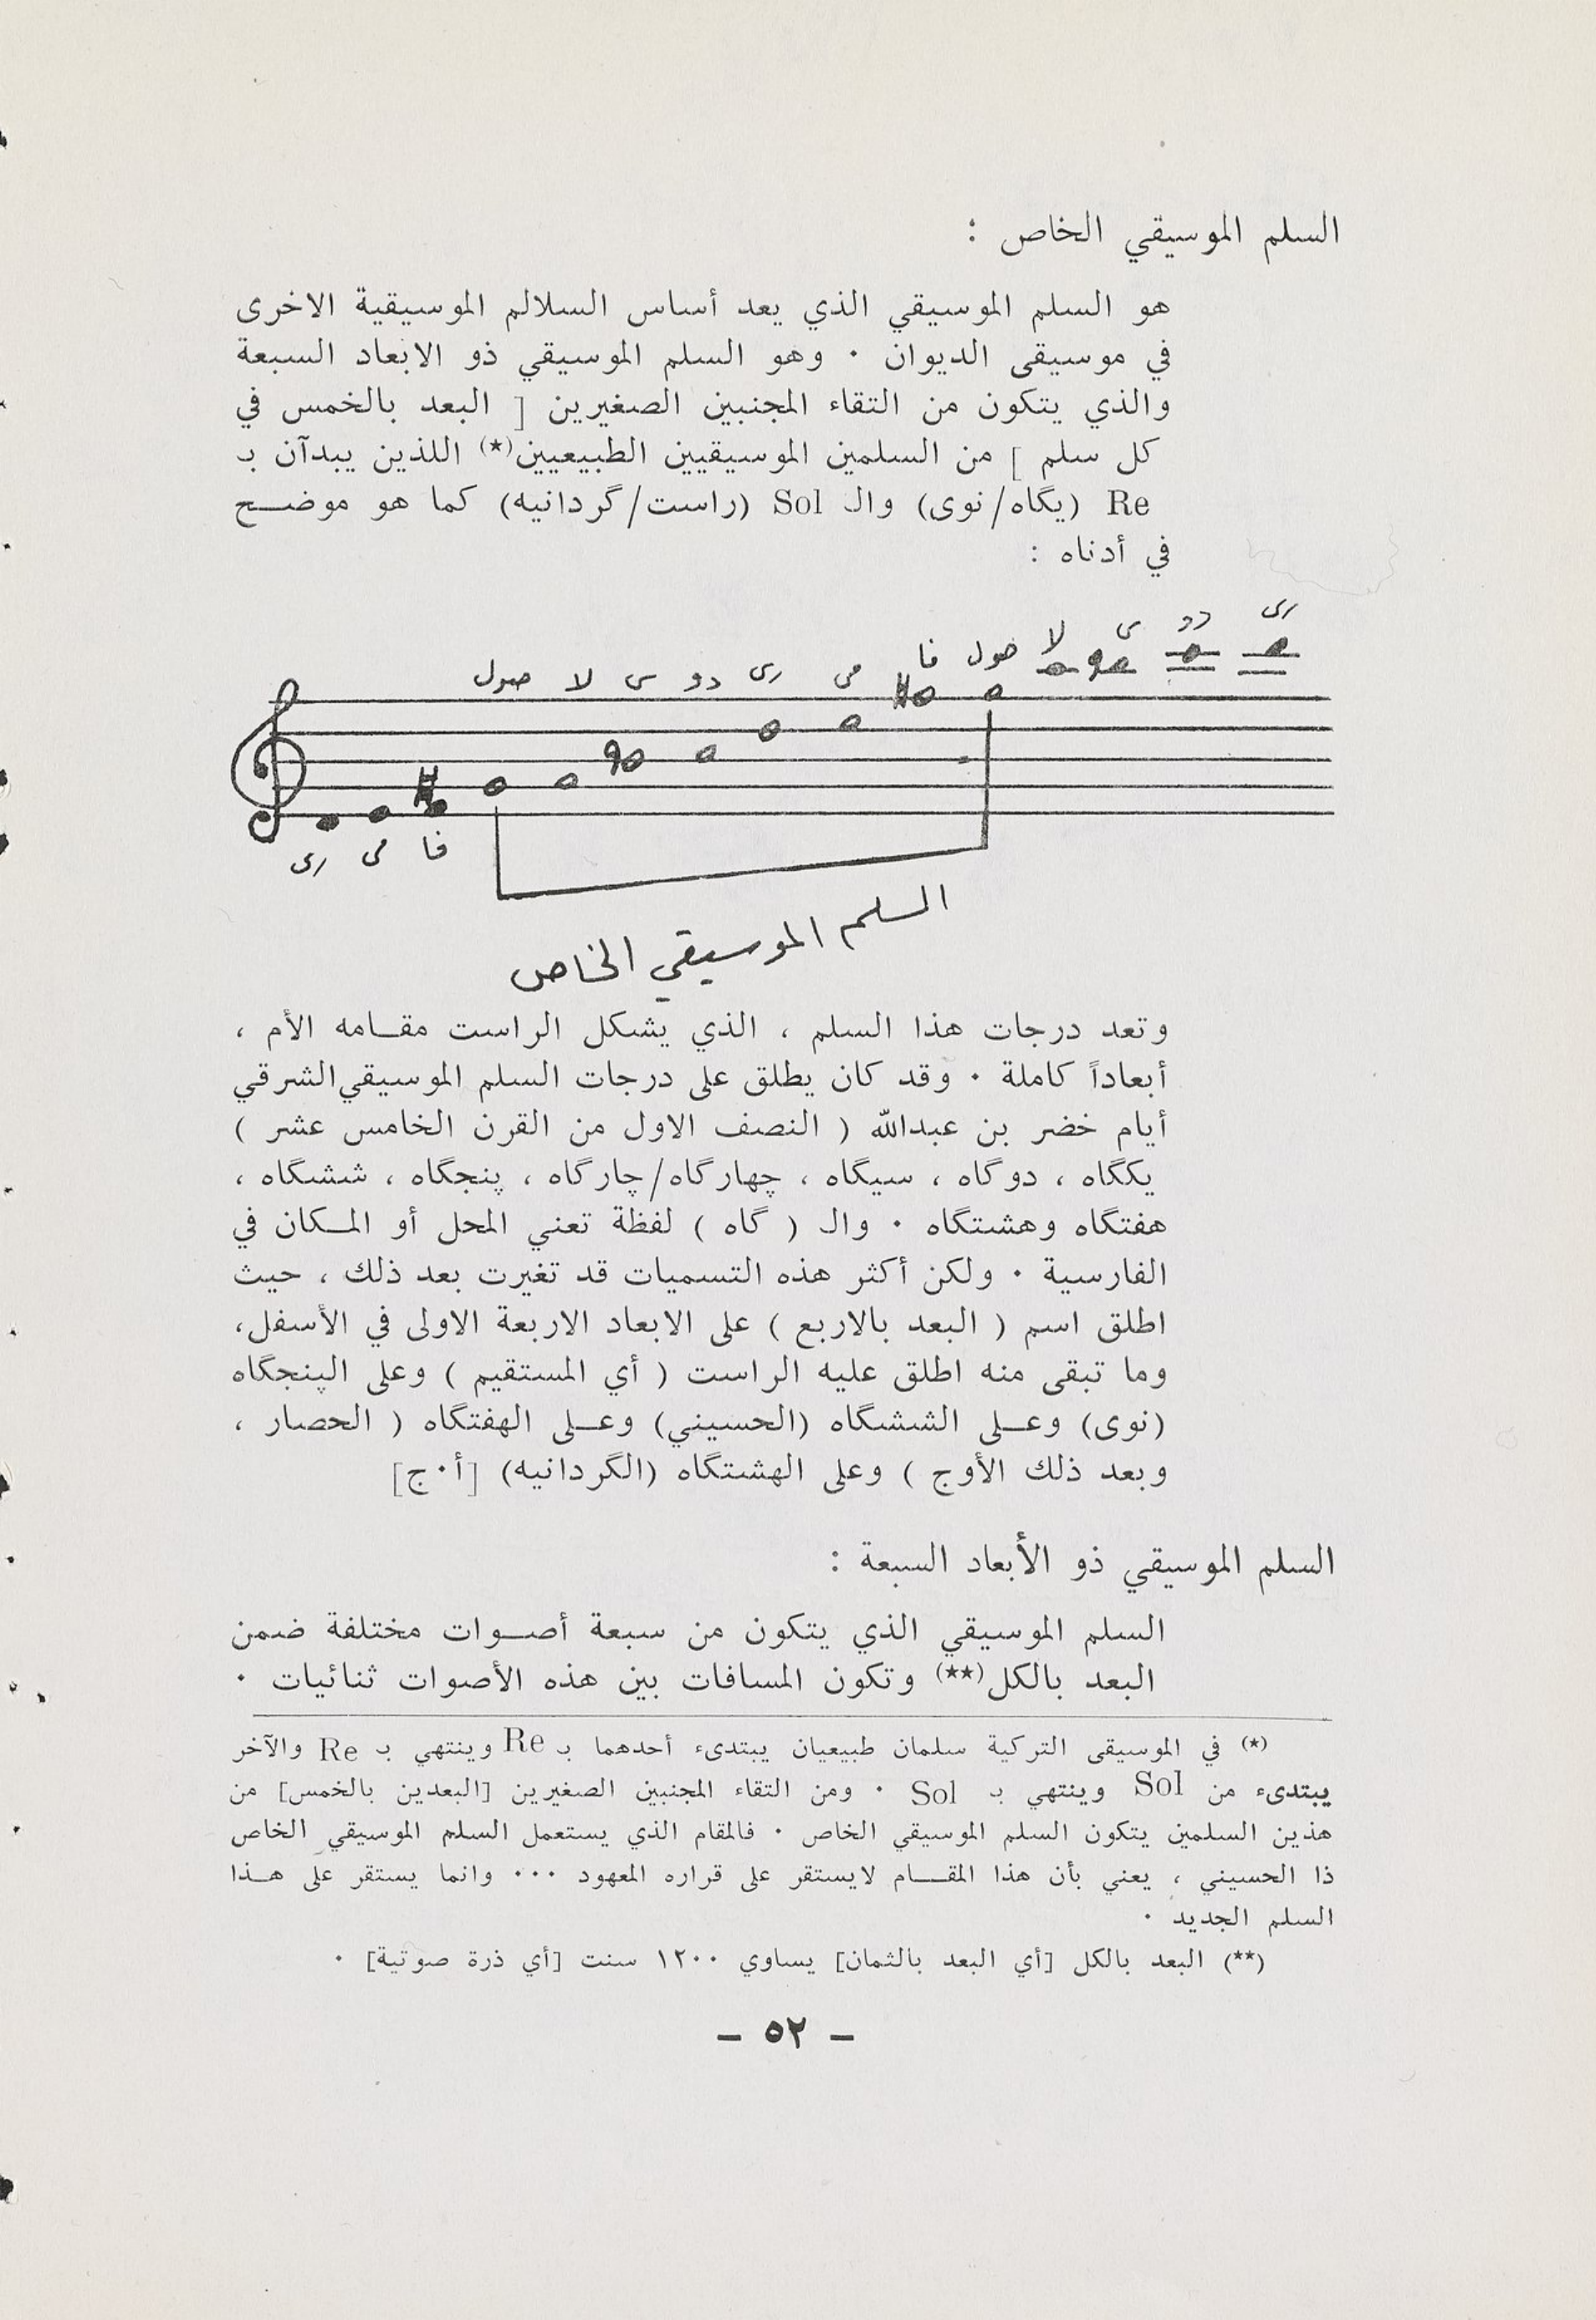 السلم الموسيقي الخاص :
هو السلم الموسيقي الذي يعد أساس السلالم الموسيقية الاخرى
في موسيقى الديوان ٠ وهو السلم الموسيقي ذو الابعاد السبعة
والذي يتكون من التقاء المجنبين الصغيرين [ البعد بالخمس في
كل سلم ] من السلمين الموسيقيين الطبيعيين(*) اللذين يبدآن بـ
Re (يگاه/نوى) والـ Sol (راست/گردانيه) كما هو موضـــح
في أدناه :
صول لا سى دو رى مى فا صول لا سى دو رى
رى مى فا
السلم الموسيقي الخاص
وتعد درجات هذا السلم ، الذي يشكل الراست مقــامه الأم ،
أبعاداً كاملة ٠ وقد كان يطلق على درجات السلم الموسيقي الشرقي
أيام خضر بن عبدالله ( النصف الاول من القرن الخامس عشر )
يكگاه ، دوگاه ، سيگاه ، چهارگاه/چارگاه ، پنجگاه ، ششگاه ،
هفتگاه وهشتگاه ٠ والـ ( گاه ) لفظة تعني المحل أو المــكان في
الفارسية ٠ ولكن أكثر هذه التسميات قد تغيرت بعد ذلك ، حيث
اطلق اسم ( البعد بالاربع ) على الابعاد الاربعة الاولى في الأسفل،
وما تبقى منه اطلق عليه الراست ( أي المستقيم ) وعلى الپنجگاه
(نوى) وعــلى الششگاه (الحسيني) وعــلى الهفتگاه ( الحصار ،
وبعد ذلك الأوج ) وعلى الهشتگاه (الگردانيه) [أ٠ج]
السلم الموسيقي ذو الأبعاد السبعة :
السلم الموسيقي الذي يتكون من سبعة أصــوات مختلفة ضمن
البعد بالكل(**) وتكون المسافات بين هذه الأصوات ثنائيات ٠
(*) في الموسيقى التركية سلمان طبيعيان يبتدىء أحدهما بـ Re وينتهي بـ Re والآخر
يبتدىء من Sol وينتهي بـ Sol ٠ ومن التقاء المجنبين الصغيرين [البعدين بالخمس] من
هذين السلمين يتكون السلم الموسيقي الخاص ٠ فالمقام الذي يستعمل السلم الموسيقي الخاص
ذا الحسيني ، يعني بأن هذا المقــام لايستقر على قراره المعهود ٠٠٠ وانما يستقر على هــذا
السلم الجديد ٠
(**) البعد بالكل [أي البعد بالثمان] يساوي ١٢٠٠ سنت [أي ذرة صوتية] ٠
– ٥٢ –